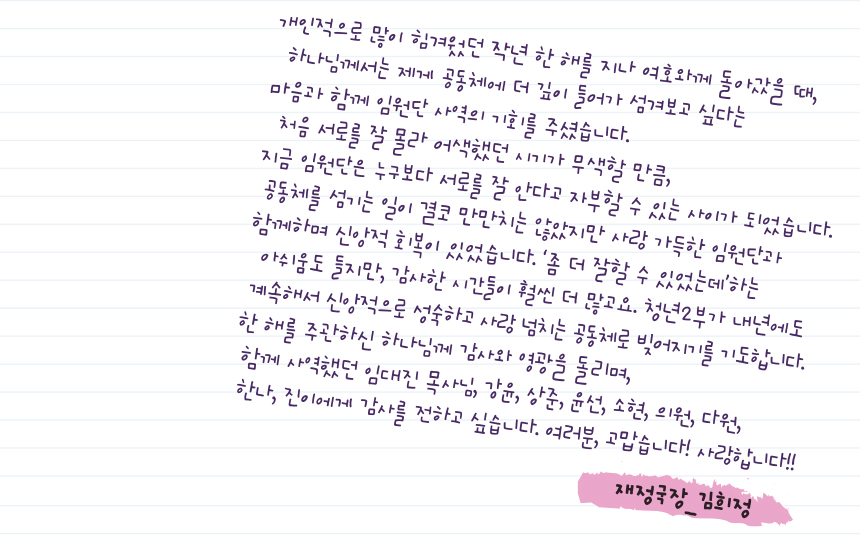 개인적으로 많이 힘겨웠던 작년 한 해를 지나 여호와께 돌아갔을 때,
하나님께서는 제게 공동체에 더 깊이 들어가 섬겨보고 싶다는
마음과 함께 임원단 사역의 기회를 주셨습니다.
처음 서로를 잘 몰라 어색했던 시기가 무색할 만큼,
지금 임원단은 누구보다 서로를 잘 안다고 자부할 수 있는 사이가 되었습니다.
공동체를 섬기는 일이 결코 만만치는 않았지만 사랑 가득한 임원단과
함께하며 신앙적 회복이 있었습니다. '좀 더 잘할 수 있었는데'하는
아쉬움도 들지만, 감사한 시간들이 훨씬 더 많고요. 청년2부가 내년에도
계속해서 신앙적으로 성숙하고 사랑 넘치는 공동체로 빚어지기를 기도합니다.
한 해를 주관하신 하나님께 감사와 영광을 돌리며,
함께 사역했던 임대진 목사님, 강윤, 상준, 윤선, 소현, 의원, 다원,
한나, 진이에게 감사를 전하고 싶습니다. 여러분, 고맙습니다! 사랑합니다!!
재정국장_김희정